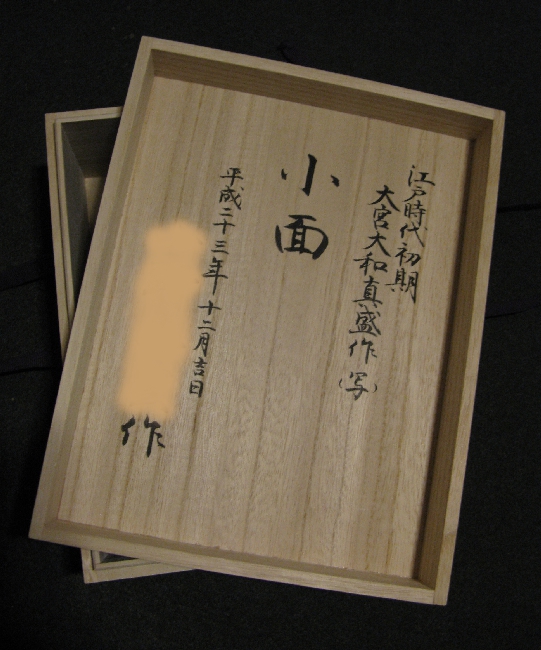 江戸時代初期
大宮大和真盛作(写)
小面
平成二十三年 十二月吉日
作